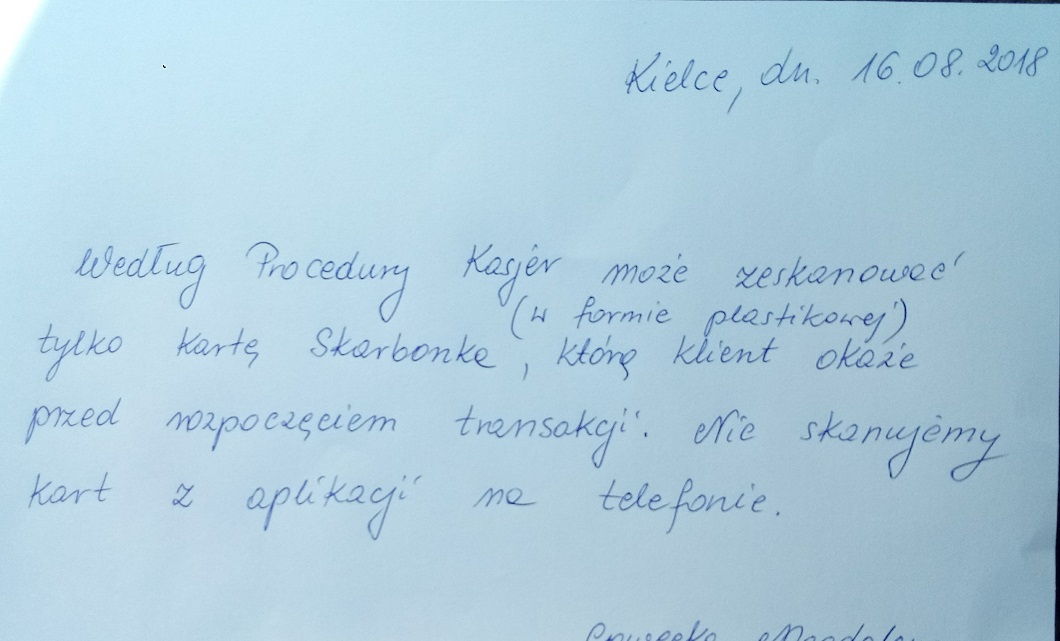 Kielce, dn. 16.08.2018
Według Procedury Kasjer może zeskanować
(w formie plastikowej)
tylko kartę Skarbonka, którą klient okaże
przed rozpoczęciem transakcji. Nie skanujemy
kart z aplikacji na telefonie.